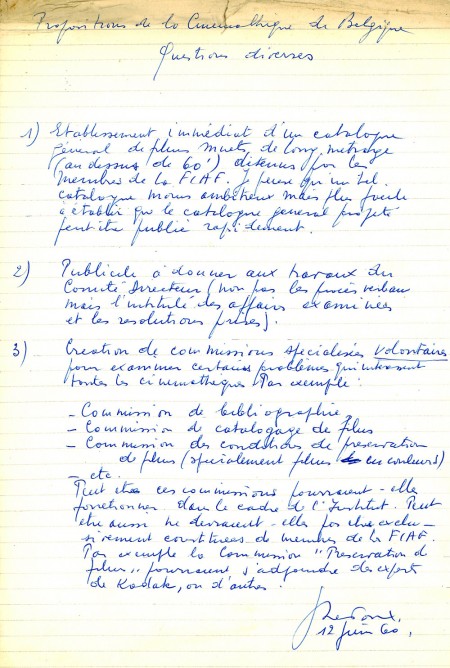 Propositions de la Cinémathèque de Belgique
Questions diverses
1) Etablissement immédiat d'un catalogue
général de films muets, de long métrage
(au dessus de 60') détenus par les
membres de la FIAF. Je pense qu'un tel
catalogue moins ambitieux mais plus facile
à établir que le catalogue général projeté
peut être publié rapidement.
2) Publicité à donner aux travaux du
Comité Directeur (non pas les procès verbaux
mais l'intitulé des affaires examinées
et les résolutions prises).
3) Création de commissions spécialisées volontaires
pour examiner certains problèmes qui intéressent
toutes les cinémathèques. Par exemple :
- Commission de bibliographie
- Commission de catalogage de films
- Commission des conditions de préservation
de films (spécialement films en couleurs)
- etc.
Peut être ces commissions pourraient-elles
fonctionner dans le cadre de l'Institut. Peut
être aussi ne devraient-elles pas être exclu-
sivement constituées de membres de la FIAF.
Par exemple la Commission "Préservation de
films" pourraient s'adjoindre des experts
de Kodak, ou d'autres.
J Ledoux.
12 juin 60.